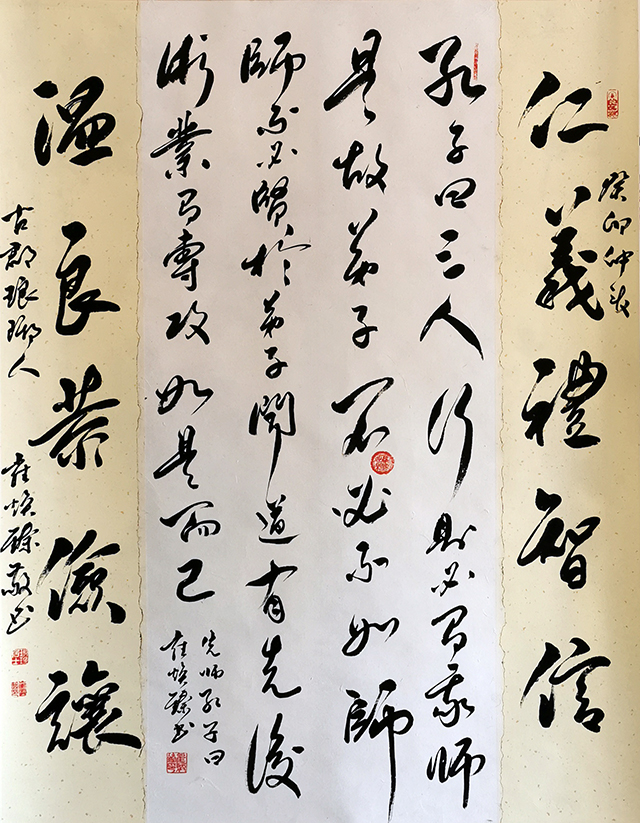 癸卯仲秋
仁義禮智信
孔子曰三人行則必有我師
是故弟子不必不如師
師不必賢於弟子聞道有先後
術業有專攻如是而已
先師孔子曰
崔煥 书
溫良恭儉讓
古郡琅琊人
崔煥 敬书